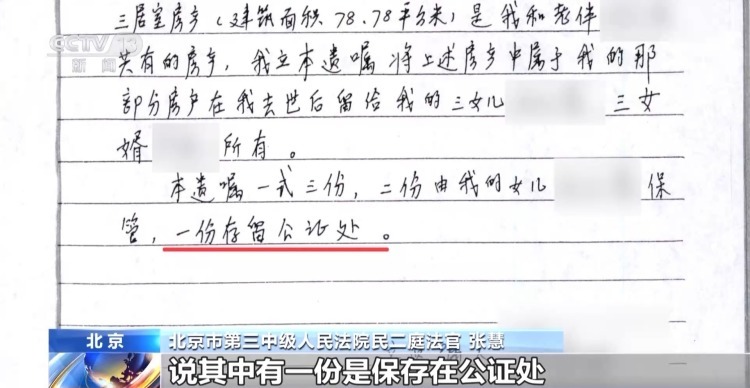 三居室房产（建筑面积78.78平方米）是我和老伴
CCTV 13
新闻
共有的房产，我立本遗嘱将上述房产中属于我的那
部分房产在我去世后留给我的三女儿 三女
婿 所有。
本遗嘱一式三份，二份由我的女儿 保
管，一份存留公证处。
北京 北京市第三中级人民法院民二庭法官 张慧
说其中有一份是保存在公证处